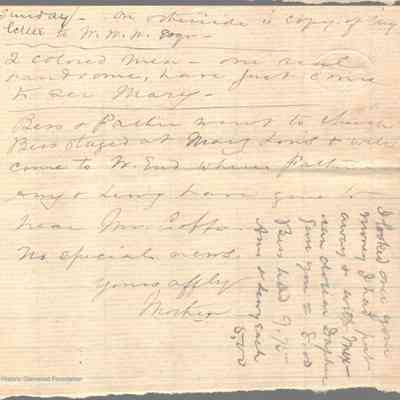 Sunday - On otherside is copy of my
letter to W. W. W. Esqr -
2 colored men - one real
handsome, have just come
to see Mary -
Bess & Pattie went to church
Bess stayed at Mary and & will
come to W. End where Pattie
and Lucy have gone to
hear Mr.
No special news.
Yours affly
Mother
I looked over your
money I had put
away & with
ran down Daphne
gave you = 8.00
Bess had 9.75
Ann & Lucy each
5.00
Historic Glenwood Foundation